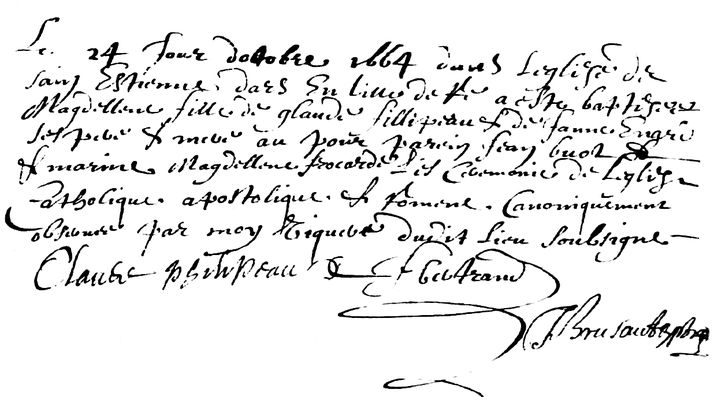 Le 24 Jour doctobre 1664 dans Leglise de
sainct Estienne dars En lille de Re a este baptisee
Magdellene fille de glaude fillipeau & de Janne Engri
ses pere & mere au pour parein Jean buor &
& marine Magdellene frocarde les Ceremonie de Leglise
Catholique apostolique & Romene Canoniquement
observee par moy viquere dudit Lieu soubsigne
Claude Philipeau & bertrand